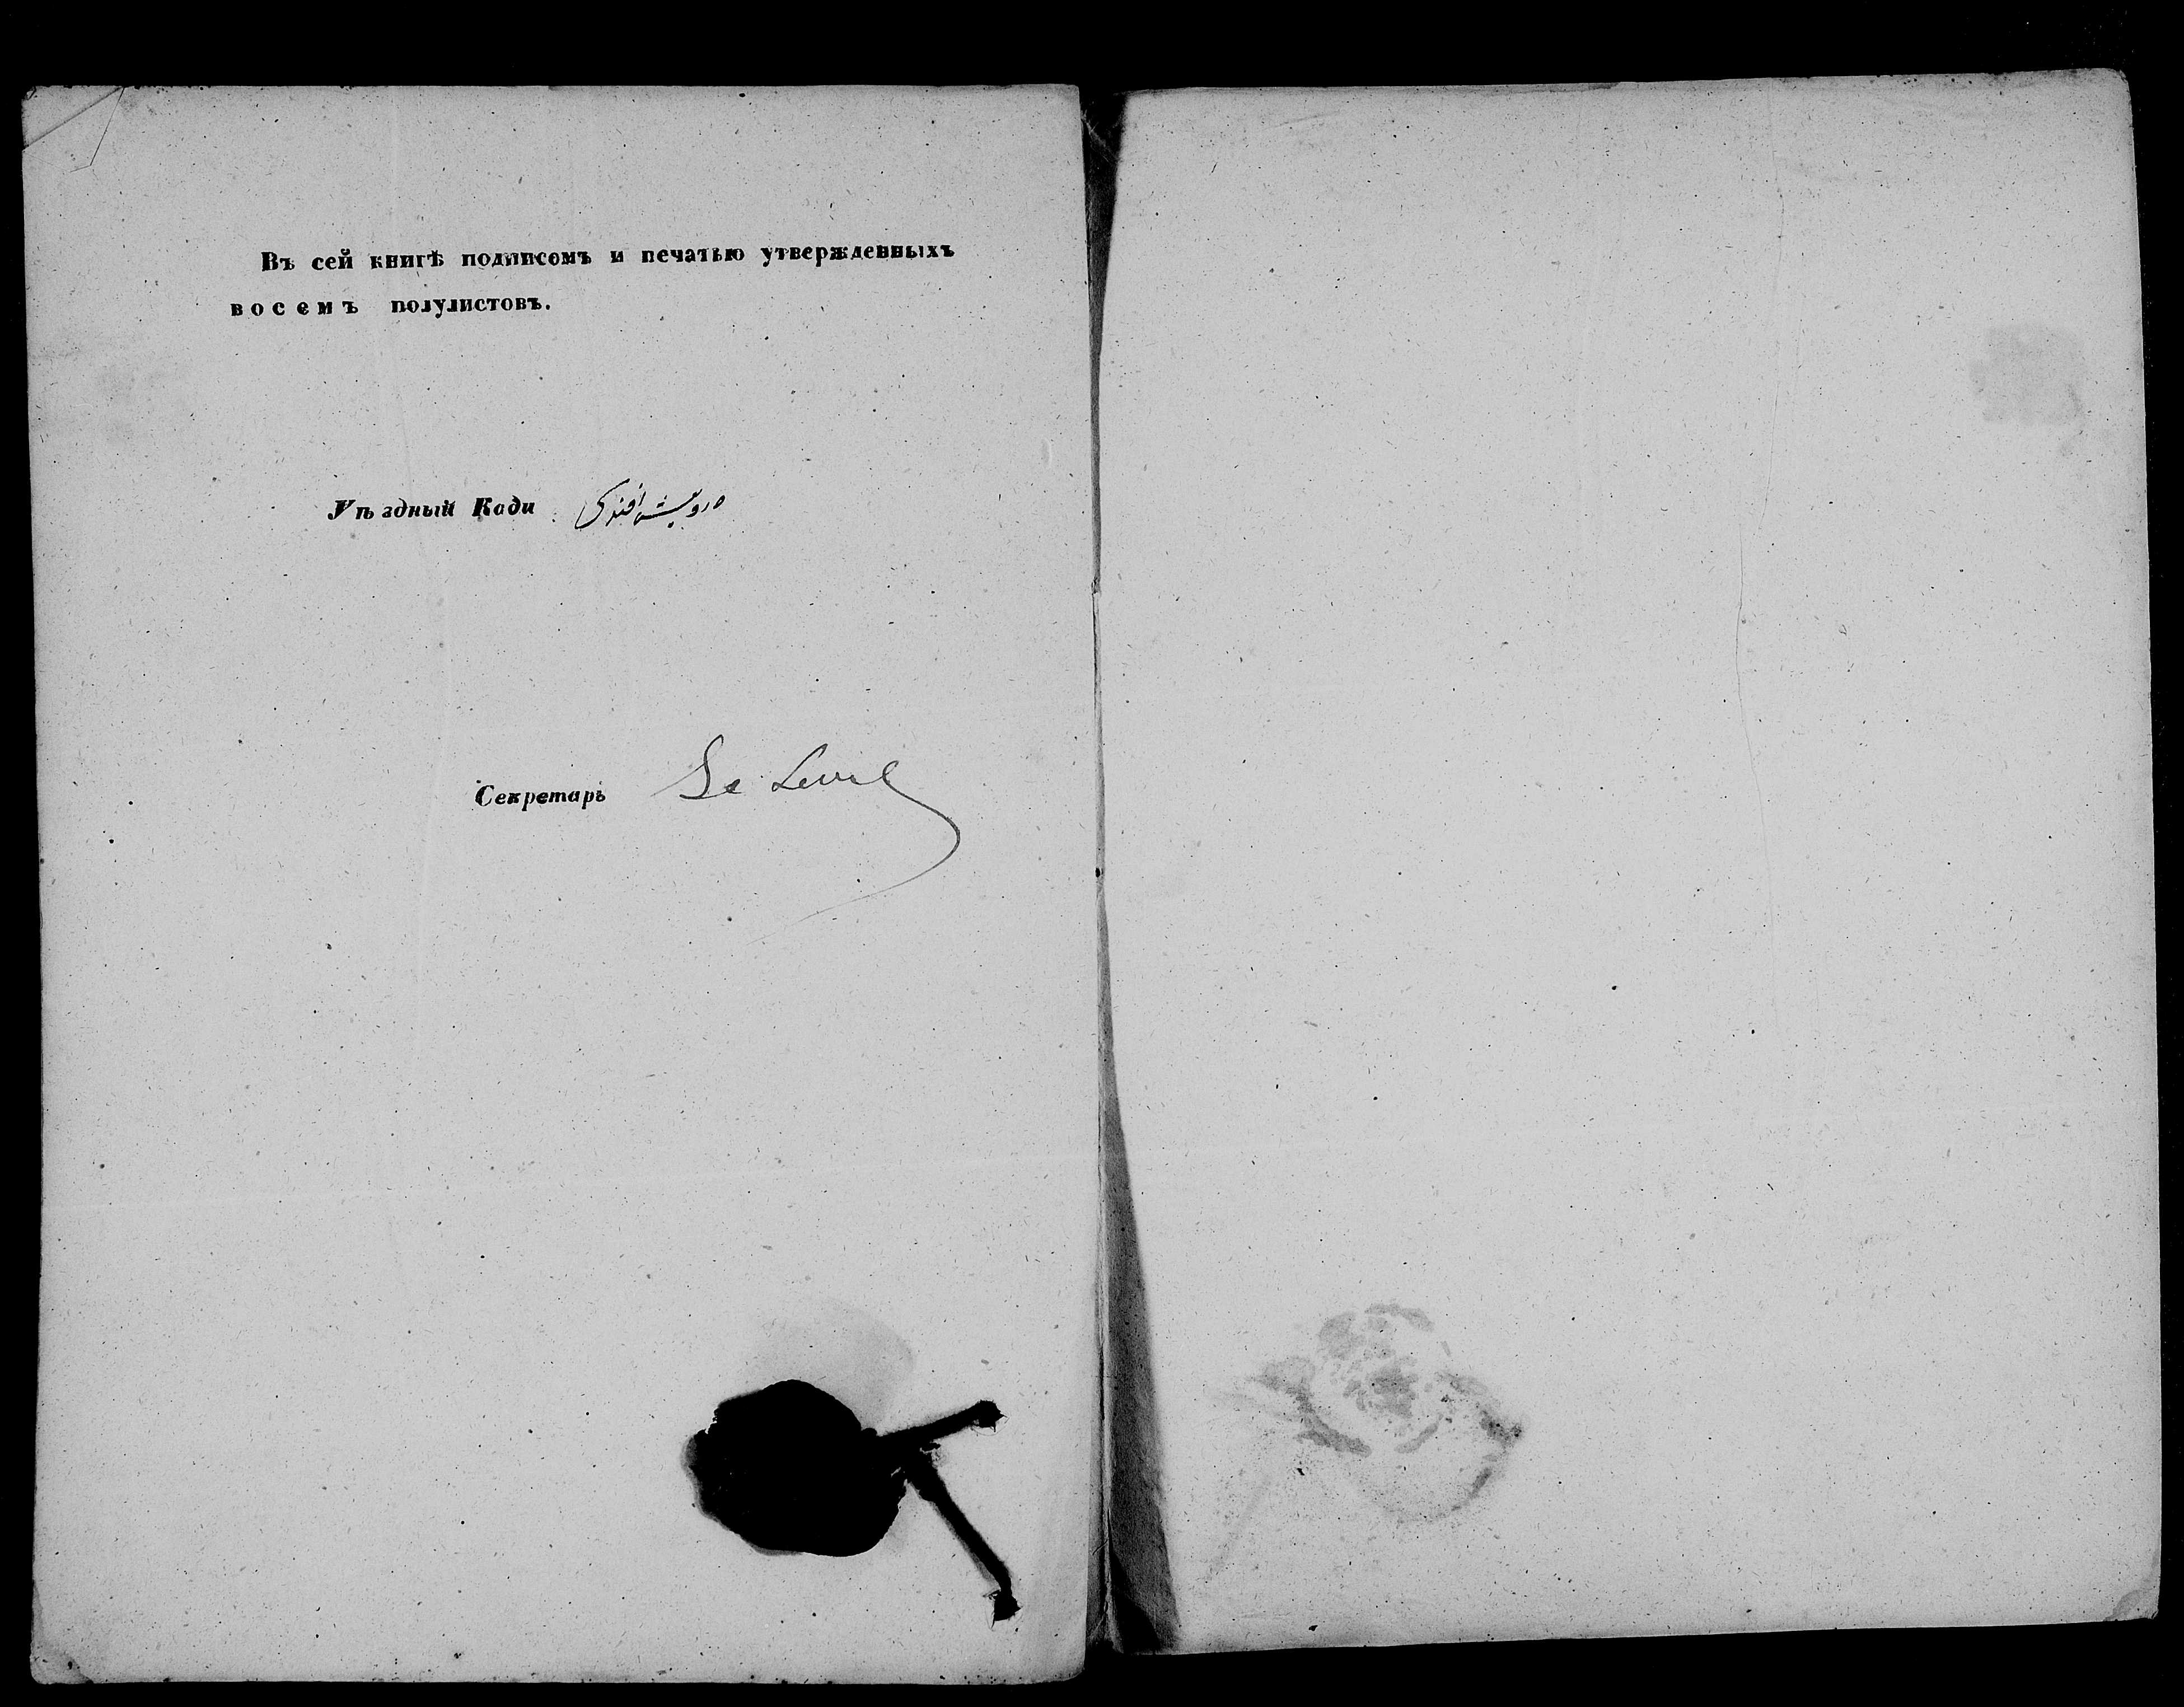 Въ сей книгѣ подписомъ и печатью утвержденныхъ
восемъ полулистовъ.
Уѣздный Кади درويش افندى
Секретарь